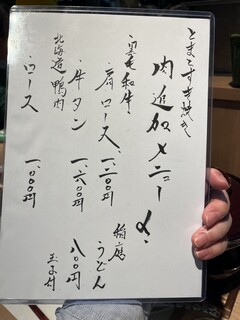 とまとすき焼き
肉追加メニュー 〆、
・黒毛和牛
・肩ロース 一、二〇〇円
・牛タン 一、六〇〇円
北海道鴨肉
・ロース 一、〇〇〇円
稲庭
うどん
八〇〇円
玉子付